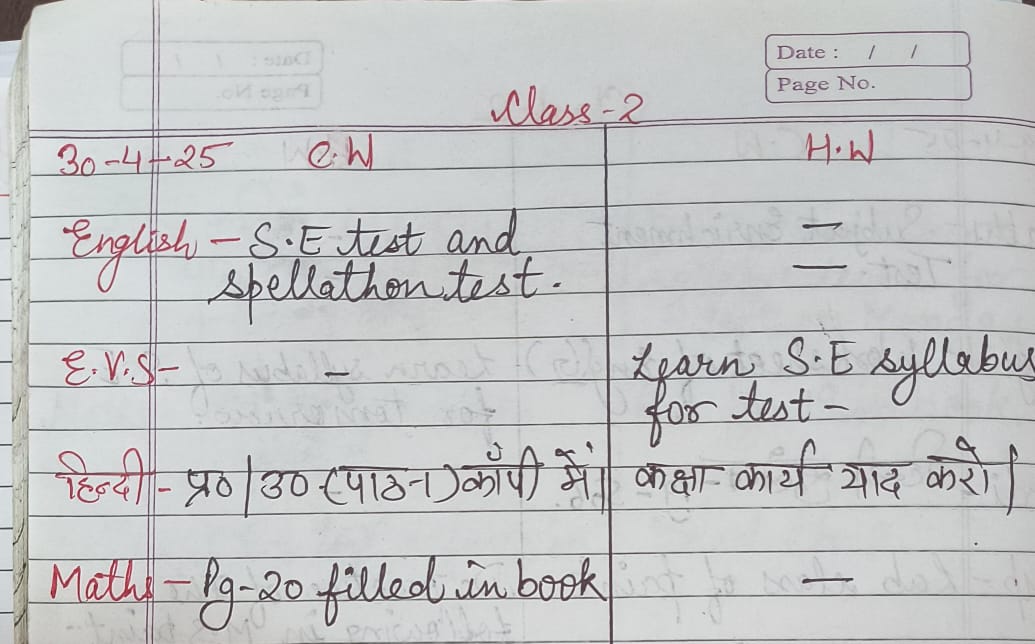 Date : / /
Page No.
Class-2
30-4-25 C.W H.W
English - S.E test and —
spellathon test. —
E.V.S - - Learn S.E syllabus
for test -
हिन्दी - प्र०|उ० (पाठ-1) कॉपी में। कक्षा कार्य याद करो।
Maths - Pg-20 filled in book —